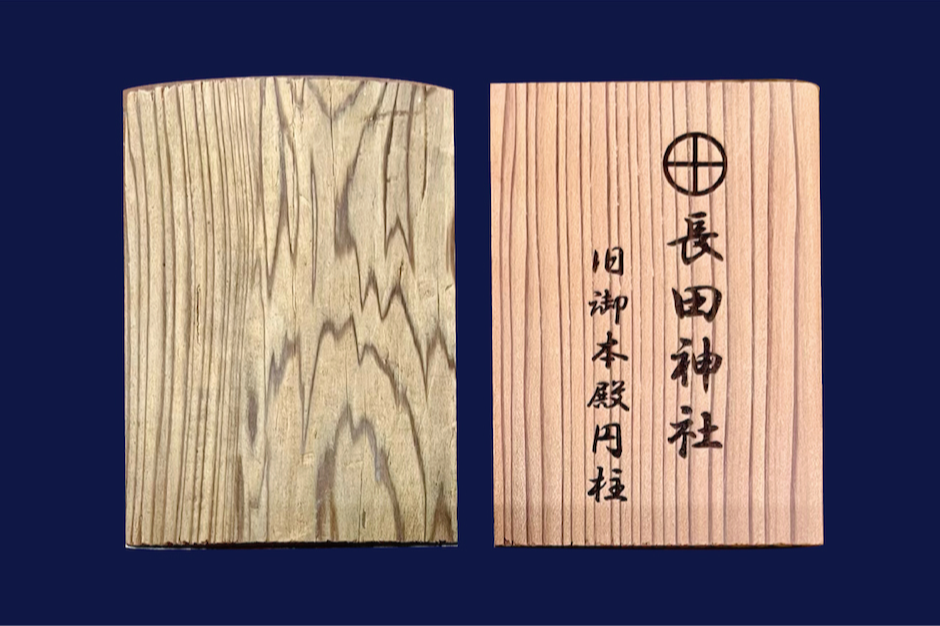 長田神社
旧御本殿円柱